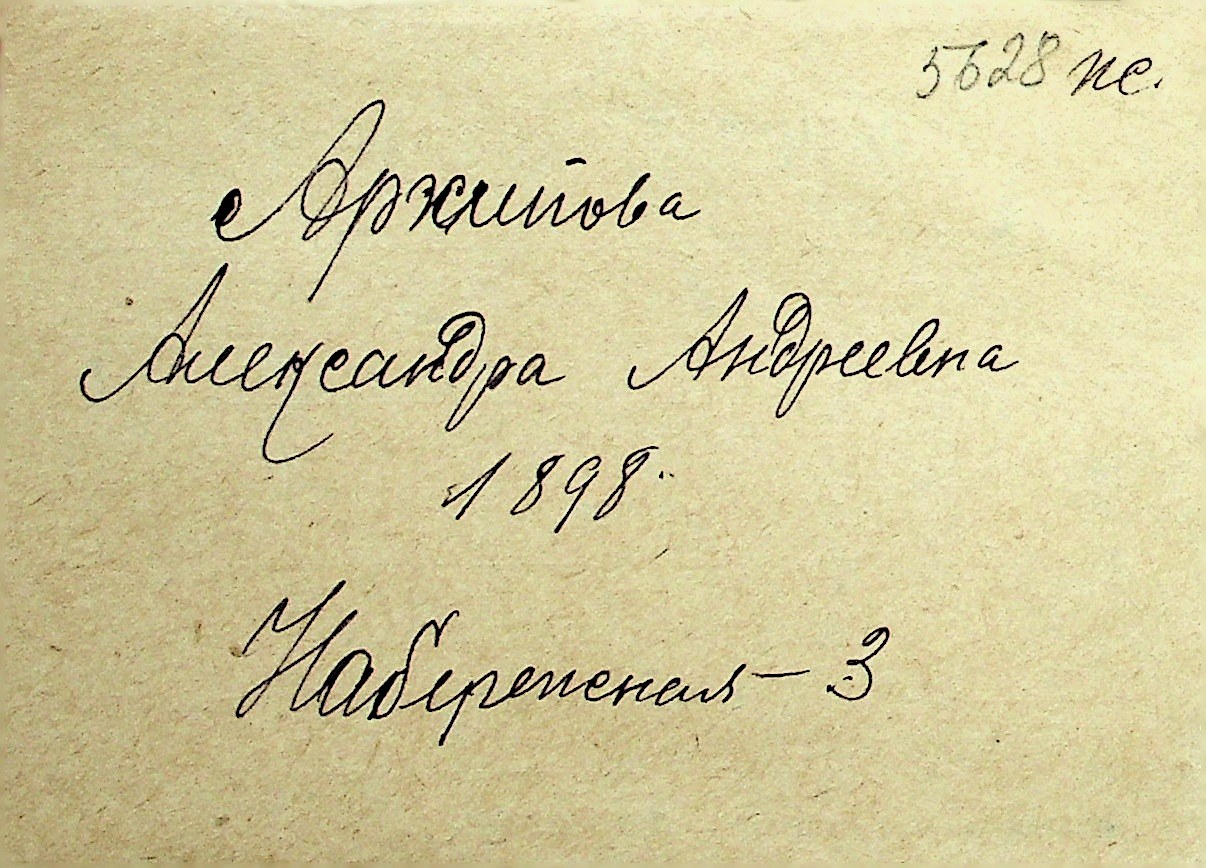 5628 пс.
Архипова
Александра Андреевна
1898.
Набережная - 3